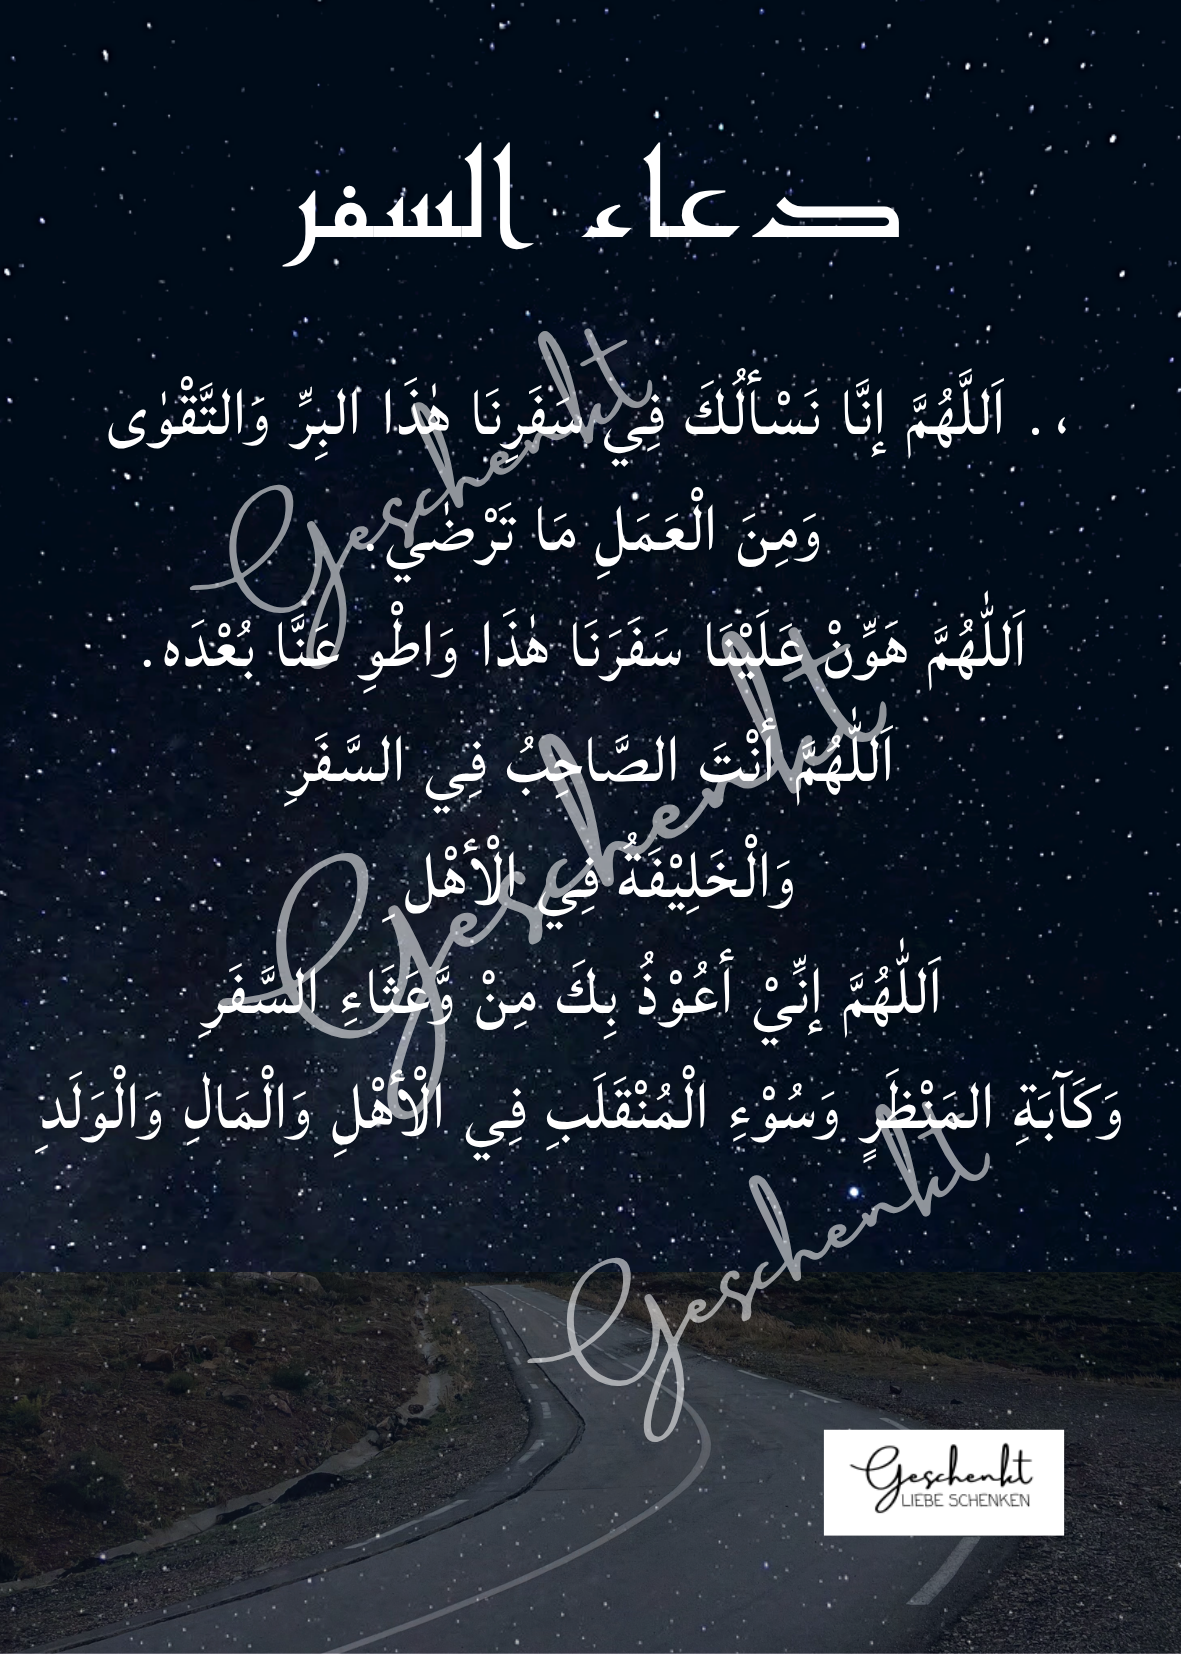 دعاء السفر
، . اَللَّهُمَّ إنَّا نَسْألُكَ فِي سَفَرِنَا هٰذَا البِرِّ وَالتَّقْوٰى
وَمِنَ الْعَمَلِ مَا تَرْضٰي.
اَللّٰهُمَّ هَوِّنْ عَلَيْنَا سَفَرَنَا هٰذَا وَاطْوِ عَنَّا بُعْدَه.
اَللّٰهُمَّ أنْتَ الصَّاحِبُ فِي السَّفَرِ
وَالْخَلِيْفَةُ فِي الْأهْلِ
اَللّٰهُمَّ إنِّيْ أعُوْذُ بِكَ مِنْ وَّعَثَاءِ السَّفَرِ
وَكَآبَةِ المَنْظَرٍ وَسُوْءِ الْمُنْقَلَبِ فِي الْأَهْلِ وَالْمَالِ وَالْوَلَدِ
Geschenkt
Geschenkt
Geschenkt
Geschenkt
LIEBE SCHENKEN